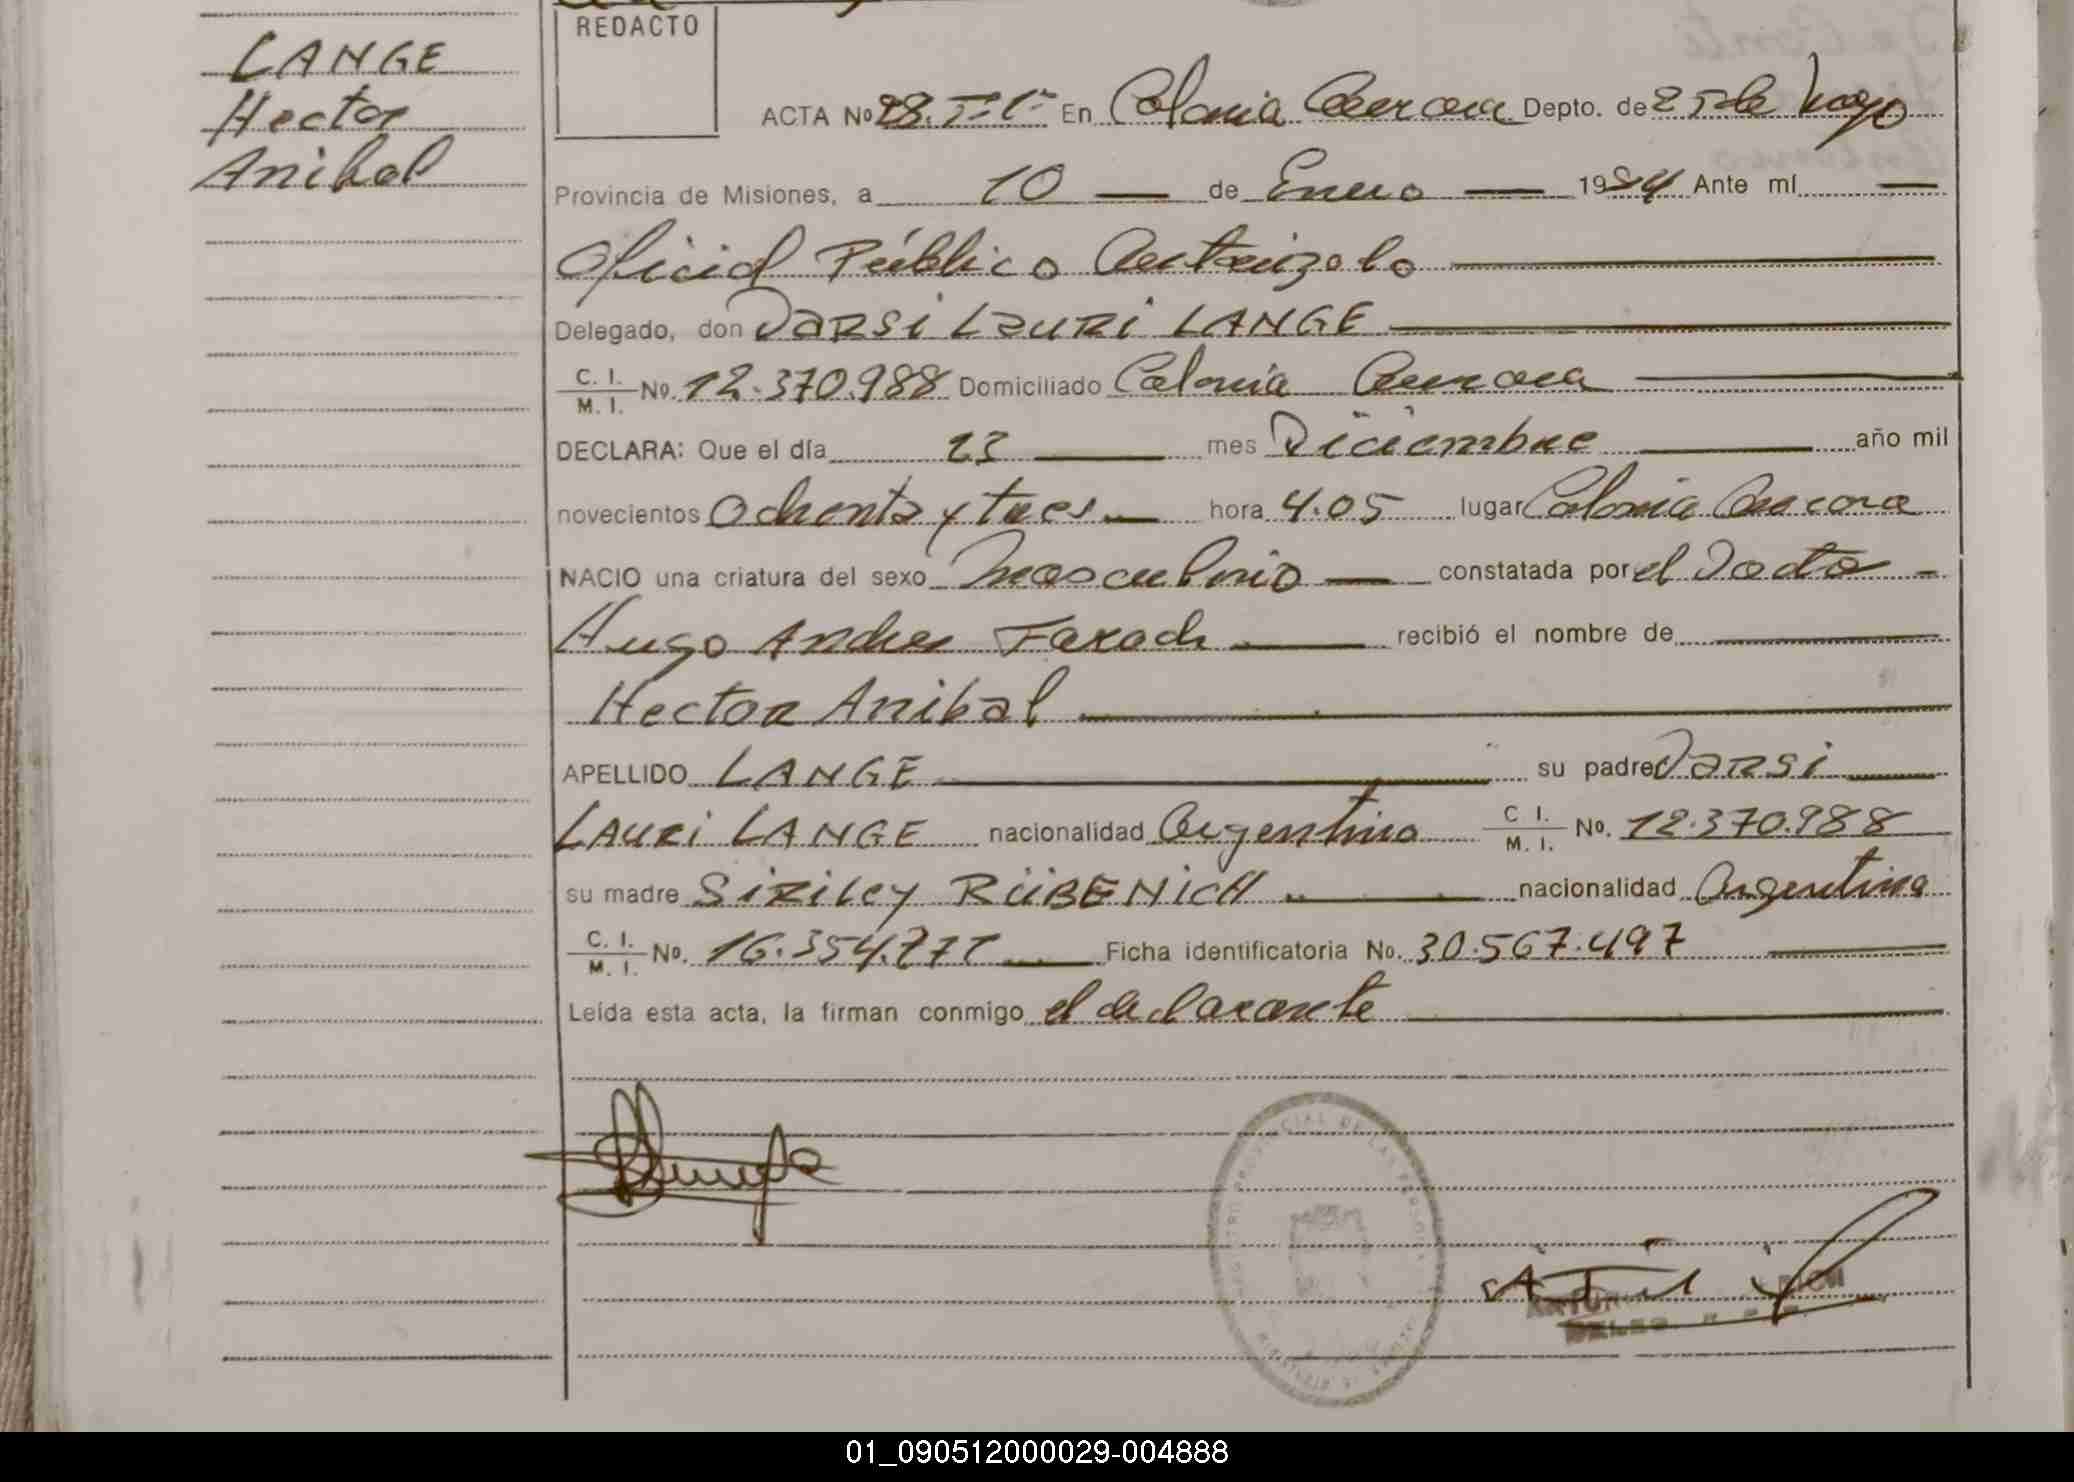 LANGE
Hector
Anibal
REDACTO
ACTA Nº 28. Tº 1º En Colonia Aurora Depto. de 25 de Mayo
Provincia de Misiones, a 10 de Enero 1984 Ante mí
Oficial Público Autorizado
Delegado, don DARSI LAURI LANGE
C. I. M. I. Nº. 12.370.988 Domiciliado Colonia Aurora
DECLARA: Que el día 23 mes Diciembre año mil
novecientos Ochenta y tres hora 4.05 lugar Colonia Aurora
NACIO una criatura del sexo Masculino constatada por el Doctor
Hugo Andres recibió el nombre de
Hector Anibal
APELLIDO LANGE su padre DARSI
LAURI LANGE nacionalidad Argentino C I. M. I. Nº. 12.370.988
su madre SIRILEY RÜBENICH nacionalidad Argentina
C. I. M. I. Nº. 16.354.777 Ficha identificatoria No. 30.567.497
Leída esta acta, la firman conmigo el declarante
01_090512000029-004888